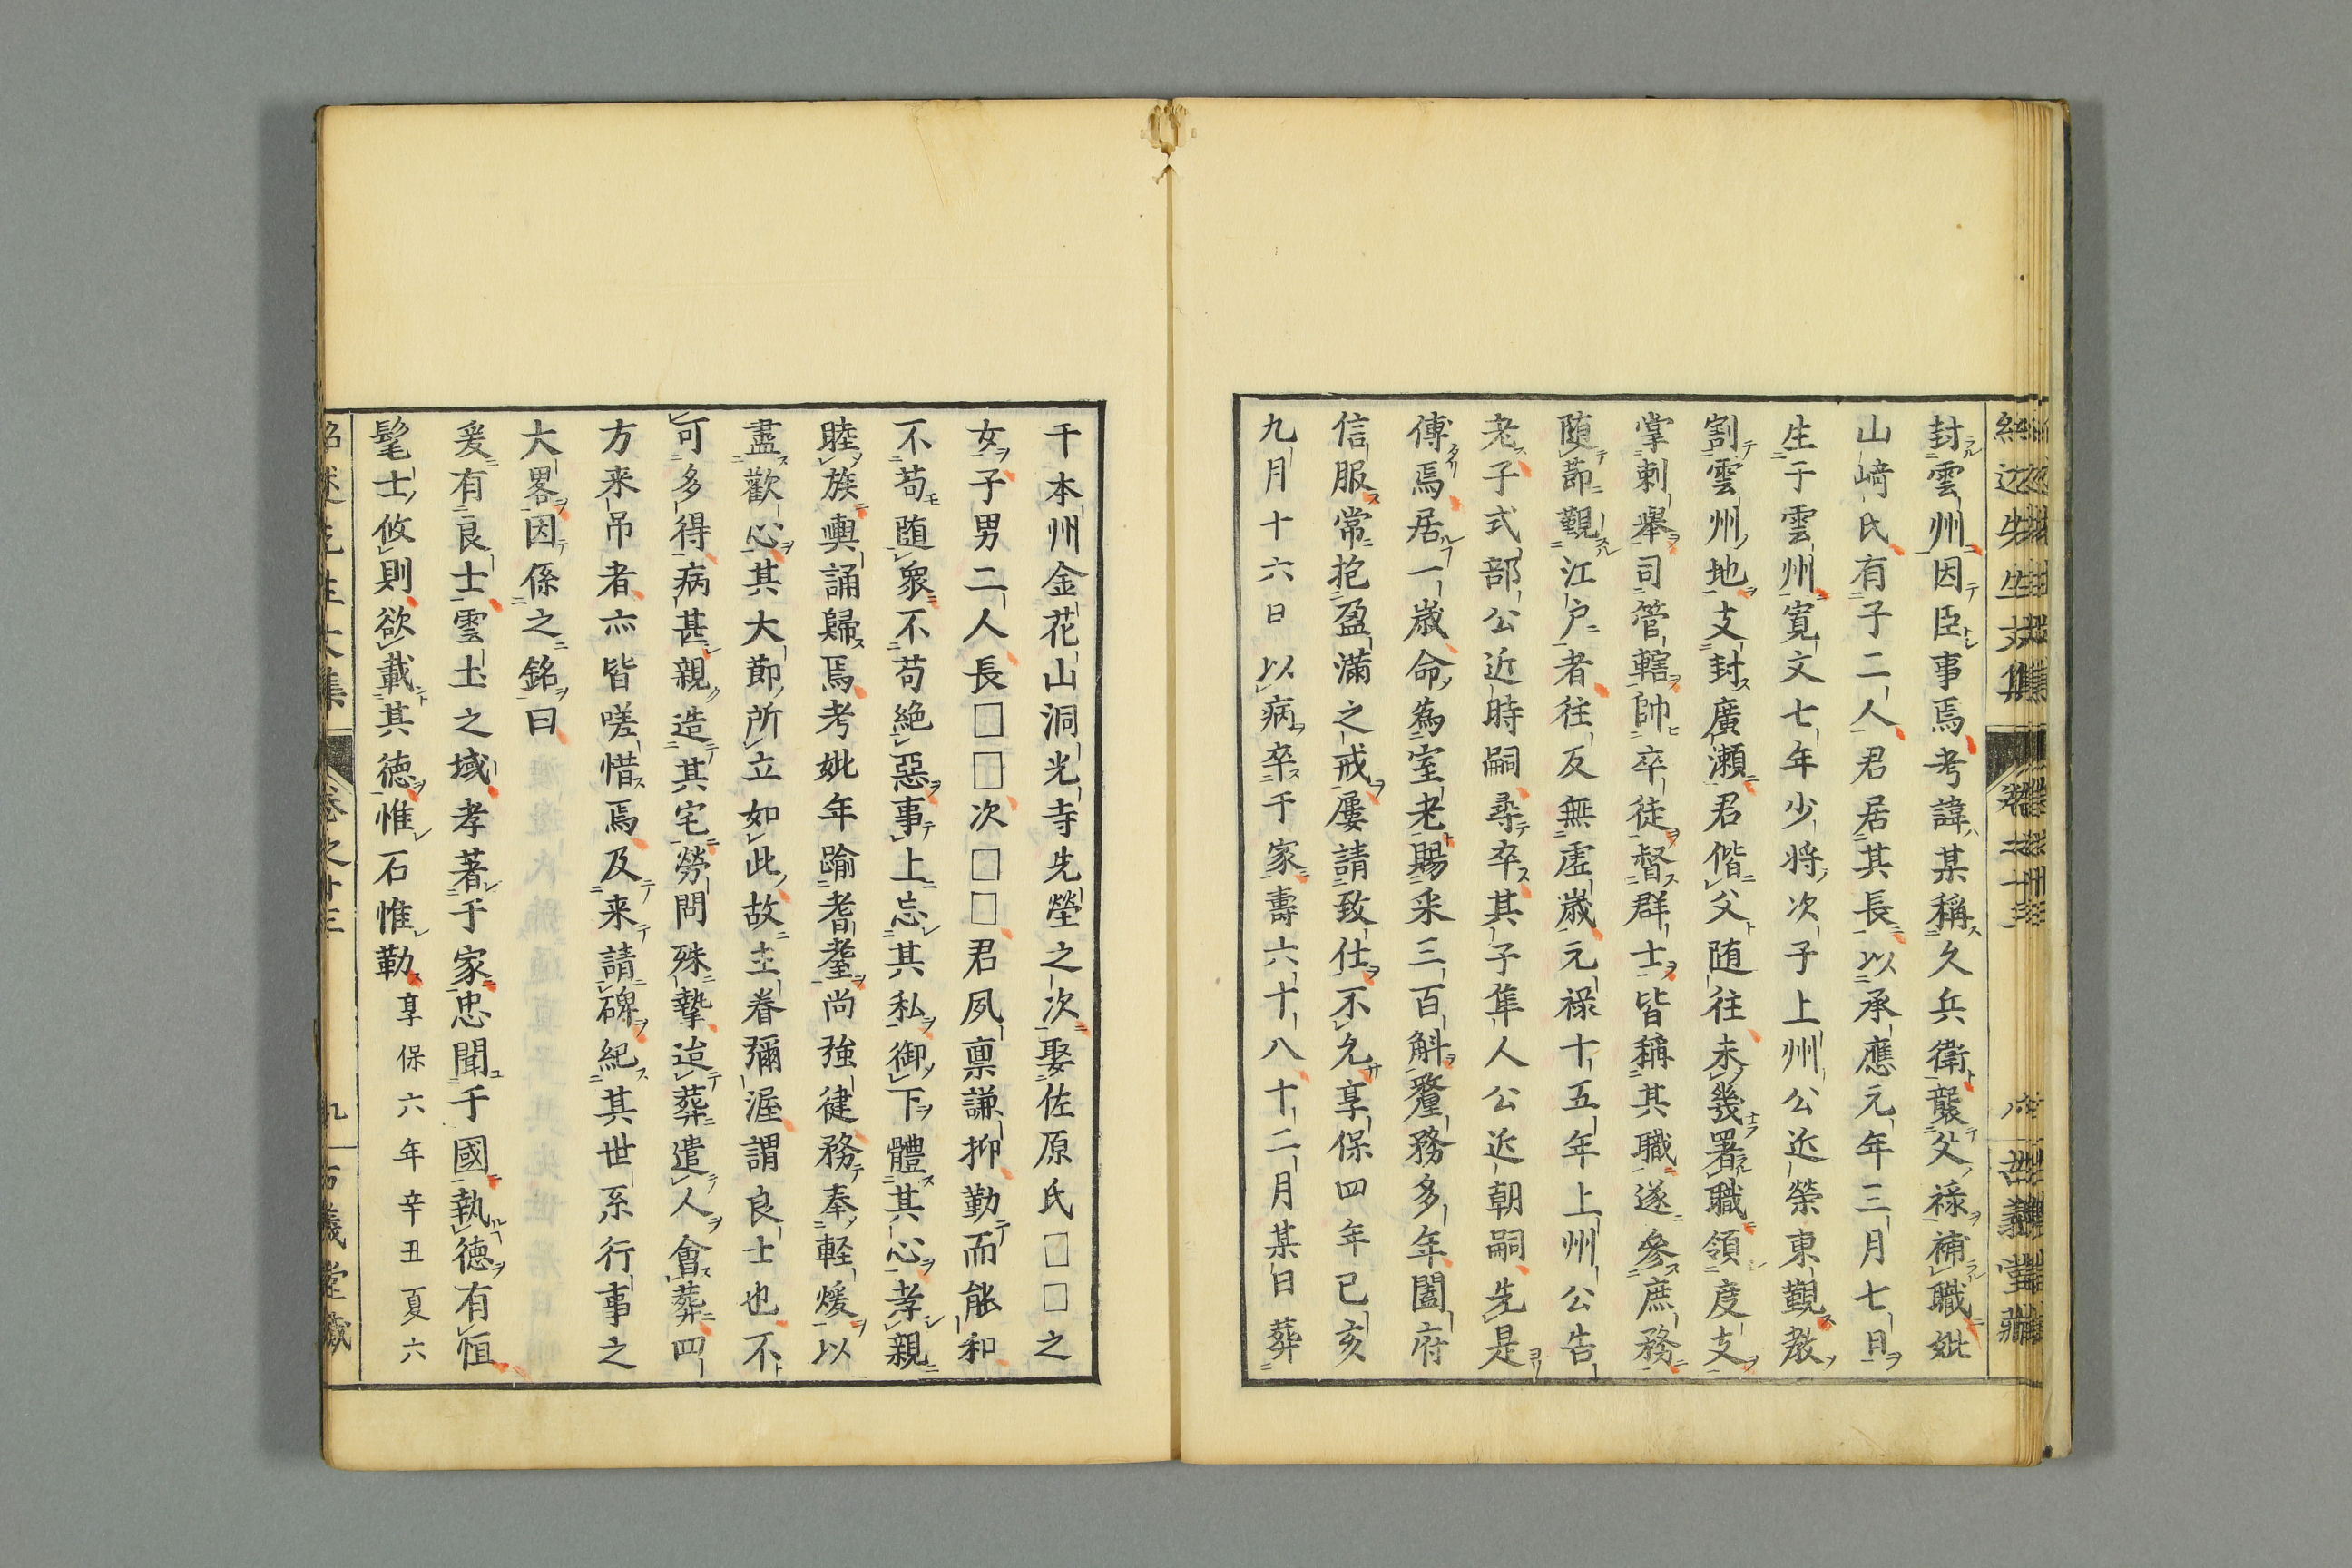 封雲州因臣事焉考諱某稱久兵衛襲父祿補職妣
山﨑氏有子二人君居其長以承應元年三月七日
生于雲州寬文七年少將次子上州公近榮東觀教
割雲州地支封廣瀨君偕父随往未幾署職領度支
掌剌舉司管轄帥卒徒督群士皆稱其職遂參庶務
随莭觀江户者往反無虛歲元祿十五年上州公告
老子式部公近時嗣尋卒其子隼人公近朝嗣先是
傅焉居一歲命為室老賜采三百斛釐務多年闔府
信服常抱盈滿之戒屢請致仕不允享保四年已亥
九月十六日以病卒于家壽六十八十二月某日葬
于本州金花山洞光寺先塋之次娶佐原氏□□之
女子男二人長□□次□□君夙禀謙抑勤而能和
不苟随衆不苟絶惡事上忘其私御下體其心孝親
睦族輿誦歸焉考妣年踰耆耋尚強健務奉輕煖以
盡歡心其大莭所立如此故主眷彌渥謂良士也不
可多得病甚親造其宅勞問殊摯迨葬遣人會葬四
方来吊者亦皆嗟惜焉及来請碑紀其世系行事之
大畧因係之銘曰
爰有良士雲土之域孝著于家忠聞于國執德有恒
髦士攸則欲載其德惟石惟勒 享保六年辛丑夏六
紹述先生文集 卷之廿三 九 古義堂藏